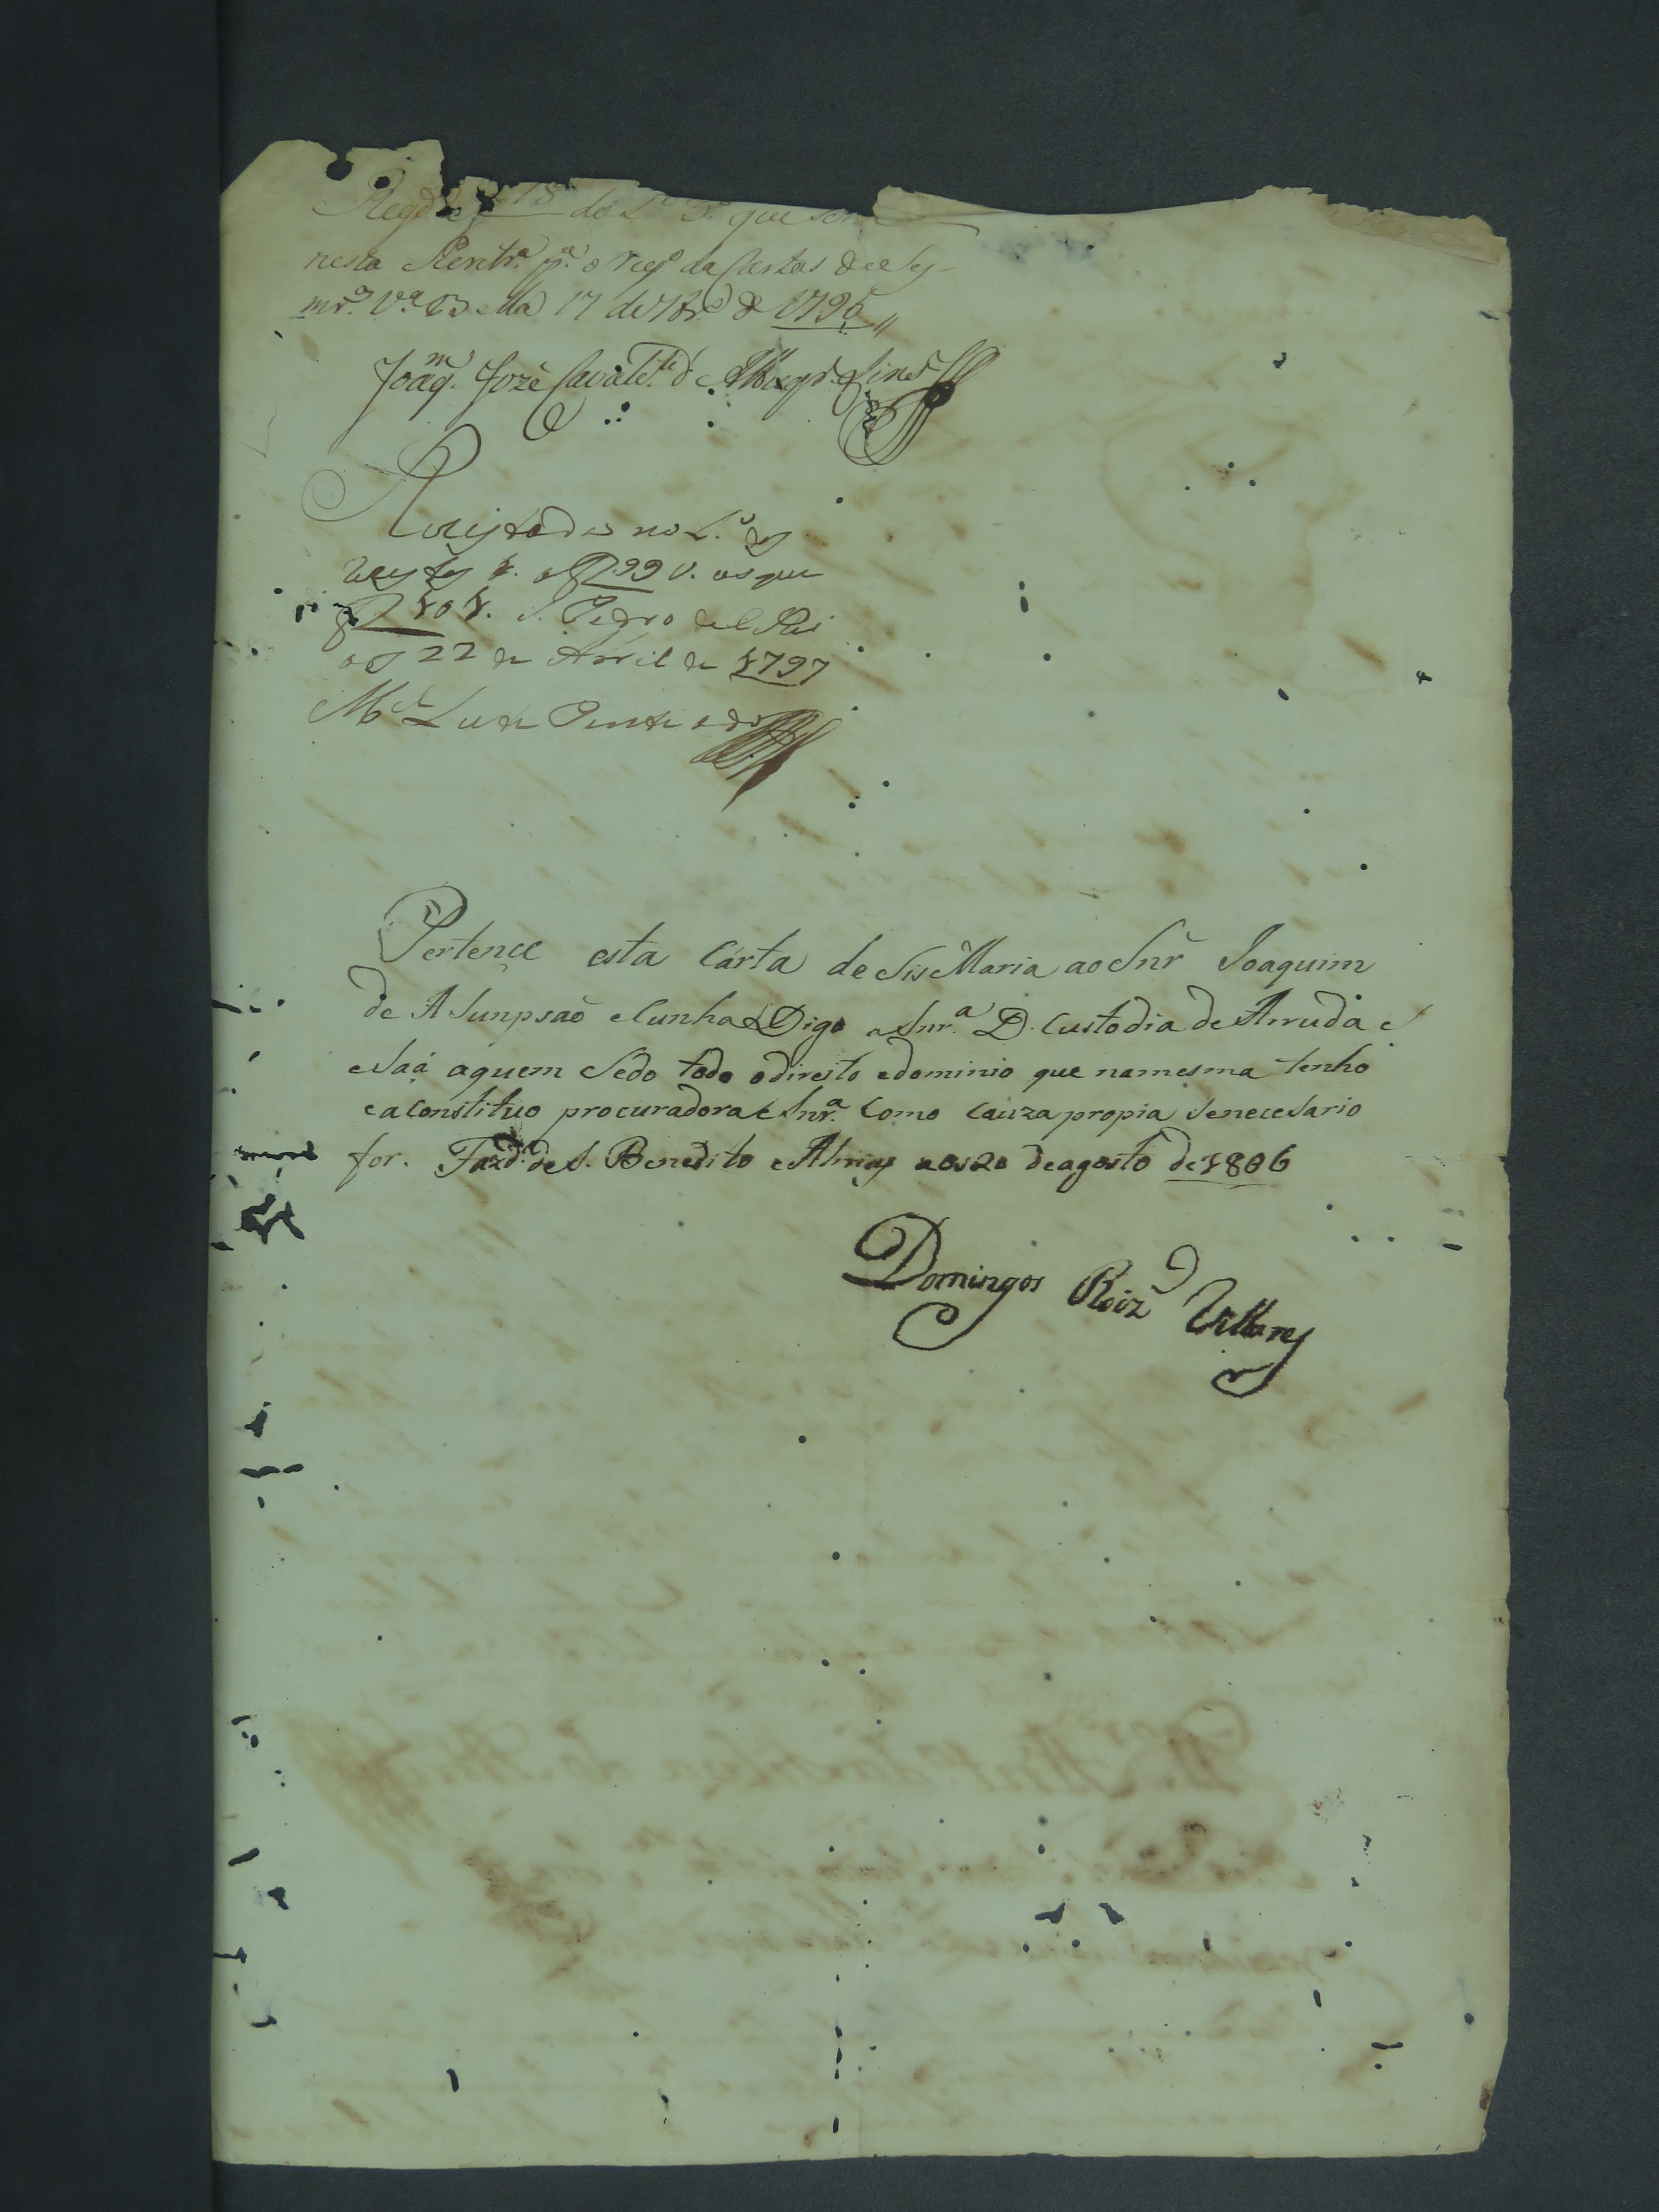 Reg.da a f 18 do L.o 3.o que serve
nesta Secretr.a p.a o reg.o da Cartas de Sey-
mr.a V.a Bella 17 de 7br.o de 1796
Joaq.m Jozé Cavalc.te d' Albuqr. Lins
Rezistada no L.o de
rezistos a f 99 v. as que
f 101. S. Pedro del Rei
aos 22 de Abril de 1797
M.el
Pertençe esta Carta de SisMaria ao Snr Joaquim
de ASunpsaõ e Cunha Digo a Snr.a D. Custodia de Arruda e
e Saá aquem Sedo todo odireito edominio que namesma tenho
eaConstituo procuradora e Snr.a Como Cauza propia Senecesario
for. Fazd.a de S. Benedito e Almas aos 20 deagosto de 1806
Domingos Roiz Villares